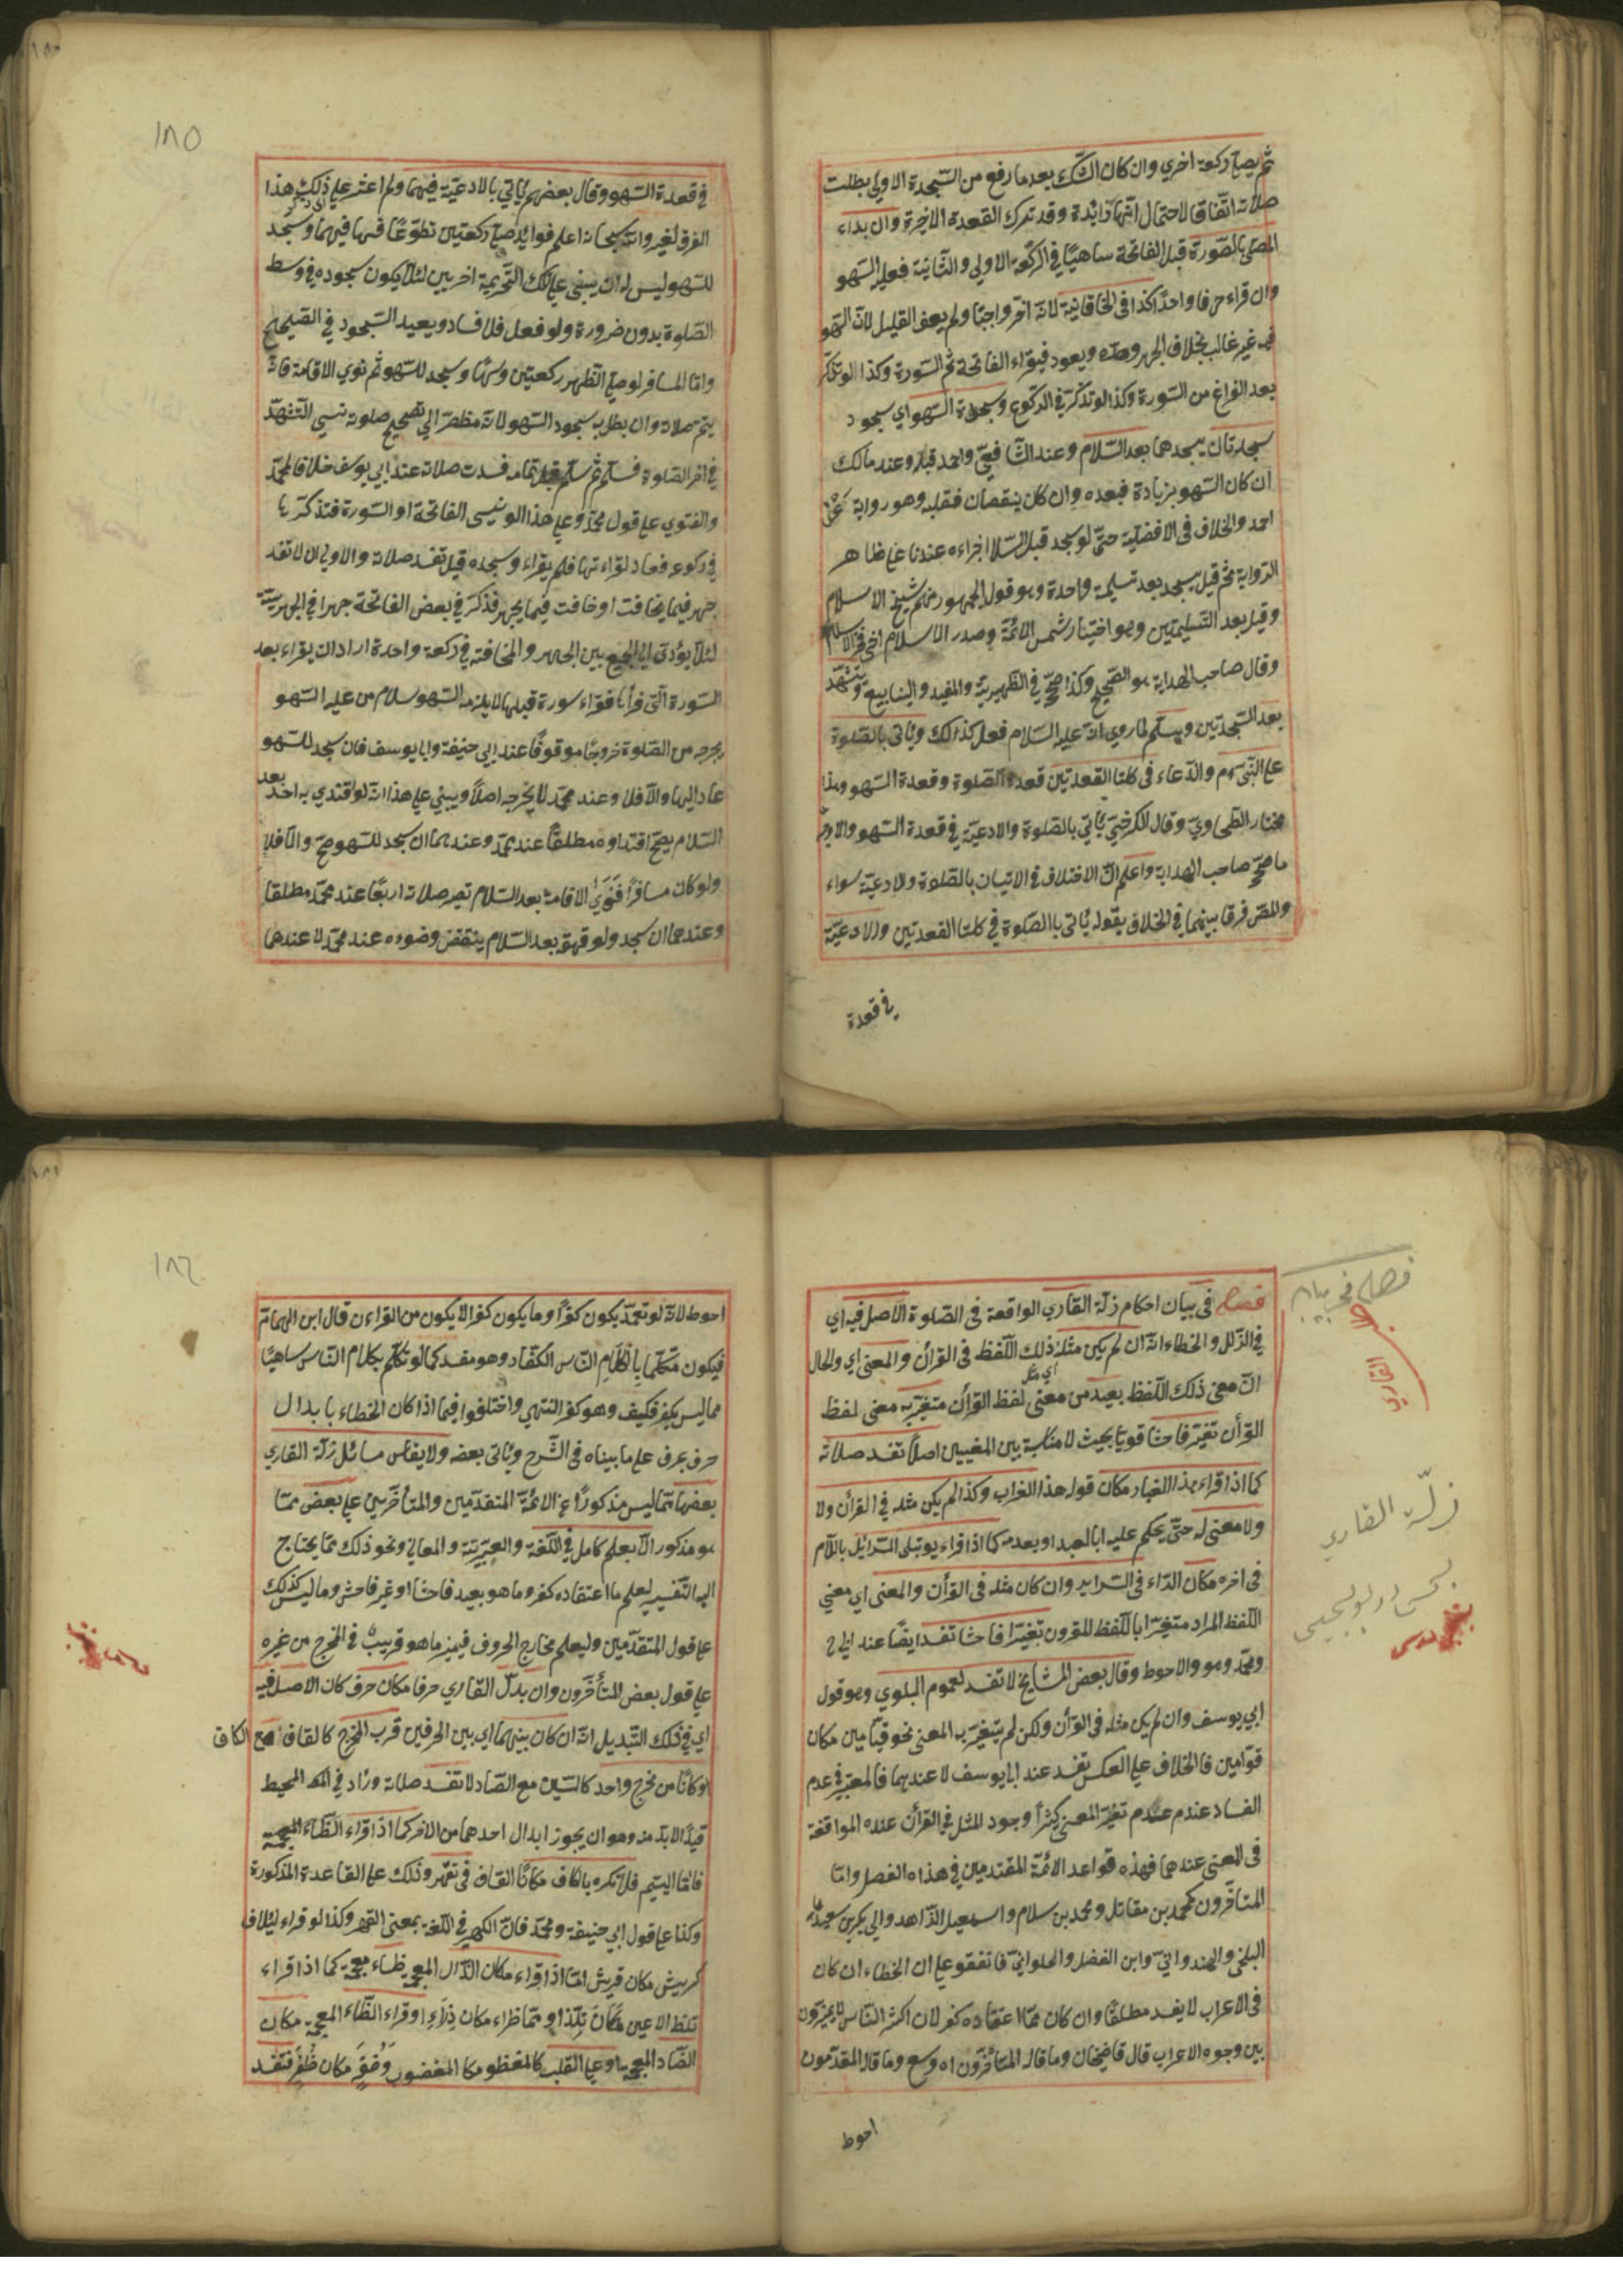 ثم يصلي ركعة اخري وان كان الشك بعد ما رفع من السجدة الاولي بطلت
صلاته اتفاقا لاحتمال انها زائدة وقد ترك القعدة الاخيرة وان بداء
المصلي بالصورة قبل الفاتحة ساهيًا في الركعة الاولي والثانية فعليه السهو
وان قراء حرفا واحدًا كذا في الخاقانية لانه اخر واجبًا ولم يعف القليل لان السهو
فيه غير غالب بخلاف الجهر وضده ويعود فيقراء الفاتحة ثم السورة وكذا لو تذكر
بعد الفراغ من السورة وكذا لو تذكر في الركوع وسجدة السهو اي سجود
سجدتان يسجدهما بعد السلام وعند الشافعي واحمد قبله وعند مالك
ان كان السهو بزيادة فبعده وان كان بنقصان فقبله وهو رواية عن
احمد والخلاف في الافضلية حتى لو سجد قبل السلا اجزاءه عندنا علي ظاهر
الرواية ثم قيل يسجد بعد تسليمة واحدة وهو قول الجمهور منهم شيخ الاسلام
وقيل بعد التسليمتين وهو اختيار شمس الائمة وصدر الاسلام اخي فخر الاسلام
وقال صاحب الهداية هو الصحيح وكذا صحح في الظهيرية والمفيد والينابيع ويتشهد
بعد السجدتين ويسلم لما روي انه عليه السلام فعل كذلك ويأتي بالصلوة
علي النبي عم والدعاء في كلتا القعدتين قعدة الصلوة وقعدة السهو وهذا
مختار الطحاوي وقال الكرخي يأتي بالصلوة والادعية في قعدة السهو والاول
ما صحح صاحب الهداية واعلم ان الاختلاف في الاتيان بالصلوة والادعية سواء
والمص فرق بينهما في الخلاف بقوله يأتي باالصلوة في كلتا القعدتين والادعية
في قعدة
١٨٥
في قعدة السهو وقال بعضهم يأتي بالادعية فيهما ولم اعثر علي ذلك هذا
الفرق لغيره والله سبحانه اعلم فوائد صلي ركعتين تطوعًا فسها فيهما وسجد
للسهو ليس له ان يبني علي تلك التحريمة اخريين لئلا يكون سجوده في وسط
الصلوة بدون ضرورة ولو فعل فلا فساد ويعيد السجود في الصحيح
واما المسافر لو صلي الظهر ركعتين وسها وسجد للسهو ثم نوي الاقامة فانه
يتم صلاته وان بطل سجود السهو لانه مضطر الي تصحيح صلوته نسي التشهد
في اخر الصلوة فسلم ثم تذكر فسدت صلاته عند ابي يوسف خلافا لمحمد
والفتوي علي قول محمد وعلي هذا لو نسي الفاتحة او السورة فتذكرها
في ركوعه فعاد لقراءتها فلم يقراء وسجده قيل تفسد صلاته والاولي ان لا تفسد
جهر فيما يخافت او خافت فيما يجهر فذكر في بعض الفاتحة جهرا في الجهرية
لئلا يؤدي الي الجمع بين الجهر والمخافتة في ركعة واحدة اراد ان يقراء بعد
السورة التي قرأها فقراء سورة قبلها لا يلزمه السهو سلام من عليه السهو
يخرجه من الصلوة خروجًا موقوفًا عند ابي حنيفة وابي يوسف فان سجد للسهو
عاد اليها والا فلا وعند محمد لا يخرجه اصلاً ويبني علي هذا انه لو اقتدي به احد بعد
السلام يصح اقتداؤه مطلقًا عند محمد وعندهما ان سجد للسهو صح والا فلا
ولو كان مسافرًا فنوي الاقامة بعد السلام تصير صلاته اربعًا عند محمد مطلقا
وعندهما ان سجد ولو قهقه بعد السلام ينتقض وضوءه عند محمد لا عندهما
فصل في بيان
زلة القاري
زلّة القاري
فصل في بيان احكام زلة القاري الواقعة في الصلوة الاصل فيه اي
في الزلل والخطاء انه ان لم يكن مثل ذلك اللفظ في القرأن والمعنى اي والحال
ان معنى ذلك اللفظ بعيد من معنى لفظ القرأن متغير به معنى لفظ
القرأن تغيّر فاحشا قويا بحيث لا مناسبة بين المعنيين اصلاً تفسد صلاته
كما اذا قراء هذا الغبار مكان قوله هذا الغراب وكذا لم يكن مثله في القرأن ولا
ولا معنى له حتي يحكم عليه ابالبعد او بعدمه كما اذا قراء يوم تبلى السرائل باللام
في اخره مكان الراء في السراير وان كان مثله في القرأن والمعنى اي معني
اللفظ المراد متغيرًا باللفظ المقرون تغيّرًا فاحشا تفسد ايضًا عند ابي ح
ومحمد وهو والاحوط وقال بعض المشايخ لا تفسد لعموم البلوي وهو قول
ابي يوسف وان لم يكن مثله في القرأن ولكن لم يتغير به المعنى نحو قيّامين مكان
قوّامين فالخلاف علي العكس تفسد عند ابي يوسف لا عندهما فالمعتبر في عدم
الفساد عندهم عدم تغير المعنى كثيرًا وجود المثل في القرأن عنده الموافقة
في المعنى عندهما فهذه قواعد الائمة المتقدمين في هذاه الفصل واما
المتأخرون كمحمد بن مقاتل ومحمد بن سلام واسمعيل الزاهد وابي بكر بن سعيد
البلخي والهندواني وابن الفضل والحلواني فاتفقو علي ان الخطاء ان كان
في الاعراب لا يفسد مطلقًا وان كان مما اعتقاده كفر لان اكثر الناس لا يميزون
بين وجوه الاعراب قال قاضيخان وما قاله المتأخرون اه وسع وما قاله المتقدمون
احوط
١٨٦
احوط لانه لو تعمد يكون كفرًا وما يكون كفرا لا يكون من القراءن قال ابن الهمام
فيكون متكلما باكلام الناس الكفار وهو مفسد كما لو تكلم بكلام الناس ساهيًا
مما ليس بكفر فكيف وهو كفر انتهي واختلفوا فيما اذا كان الخطاء بابدال
حرف بحرف علي ما بيناه في الشرح ويأتي بعضه ولا يقاس مسائل زلة القاري
بعضها مما ليس مذكورًا عن الائمة المتقدمين والمتأخرين علي بعض مما
هو مذكور الا بعلم كامل في اللغة والعربية والمعاني ونحو ذلك مما يحتاج
اليه التفسير ليعلم ما اعتقاده كفر وما هو بعيد فاحشا او غير فاحش وما ليس كذلك
علي قول المتقدمين وليعلم مخارج الحروف فيميز ما هو قريب في المخرج من غيره
علي قول بعض المتأخرون وان بدل القاري حرفا مكان حرف كان الاصل فيه
اي في ذلك التبديل انه ان كان بينهما اي بين الحرفين قرب المخرج كالقاف مع الكاف
او كانا من مخرج واحد كالسين مع الصاد لا تفسد صلاته وزاد في المحيط
قيدًا لابد منه وهو ان يجوز ابدال احدهما من الاخر كما اذا قراء
فاما اليتيم فلا تكهر بالكاف مكان القاف في تقهر وذلك علي القاعدة المذكورة
وكذا علي قول ابي حنيفة ومحمد فان الكهر في اللغة بمعنى القهر وكذا لو قراء ليئلاف
كريش مكان قريش اما اذا قراء مكان الذال المعجمة ظاء معجمة كما اذا قراء
تلظ الاعين مكان تلذ او مما ظراء مكان ذراء او قراء الظاء المعجمة مكان
الضاد المعجمة او علي القلب كالمغظوب مكا المغضوب وضفر مكان ظفر فتفسد